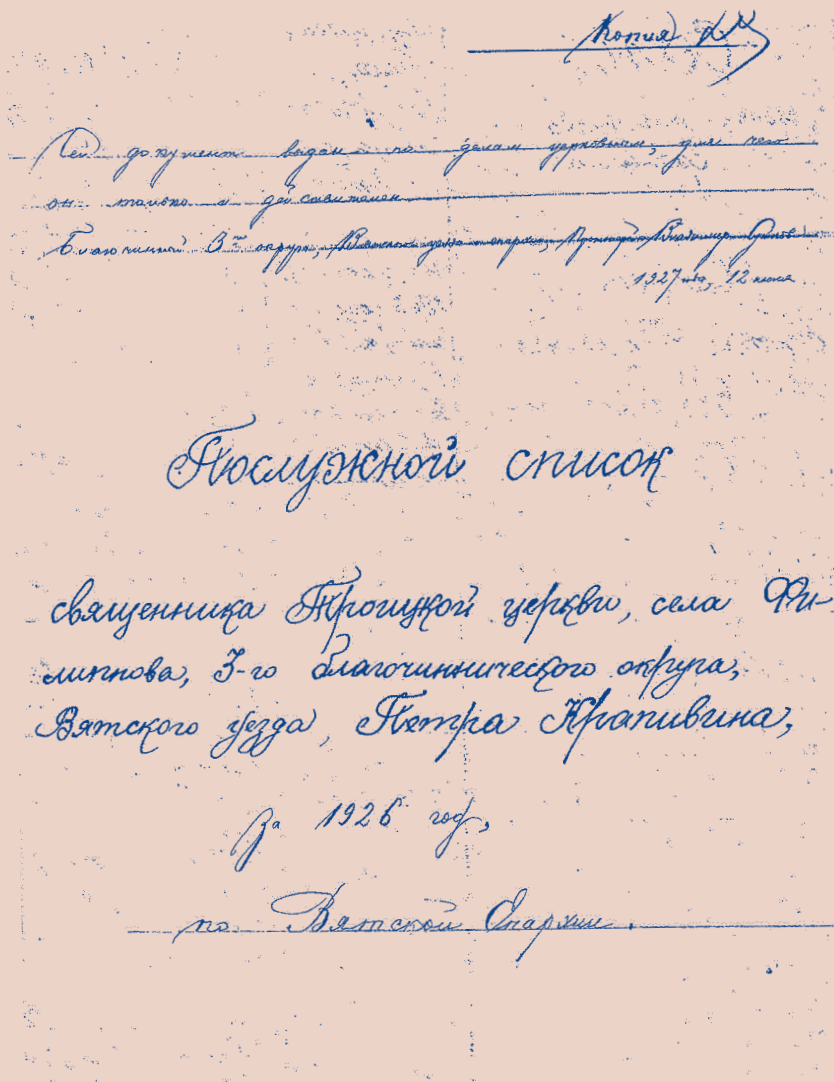 Копия
Сей документ выдан по делам церковным, для чего
он только и действителен
Благочинный 3го округа, Вятского уезда и епархии, Протоиерей Владимир
1927 года, 12 июня
Послужной список
священника Троицкой церкви, села Фи-
липпова, 3-го благочиннического округа,
Вятского уезда, Петра Крапивина,
За 1926 год,
по Вятской Епархии.